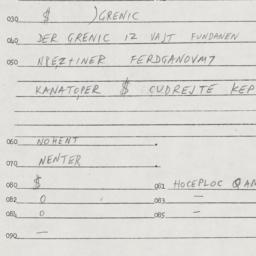 030 $ )GRENIC
040 DER GRENIC IZ VAJT FUNDANEN
050 NPEZ+INER FERDGANOVM7
KANATOPER $ CUDREJTE KEP
060 NOHENT
070 NENTER
080 $ 081 HOCEPLOC QAN
082 0 083 —
084 0 085 —
090 —